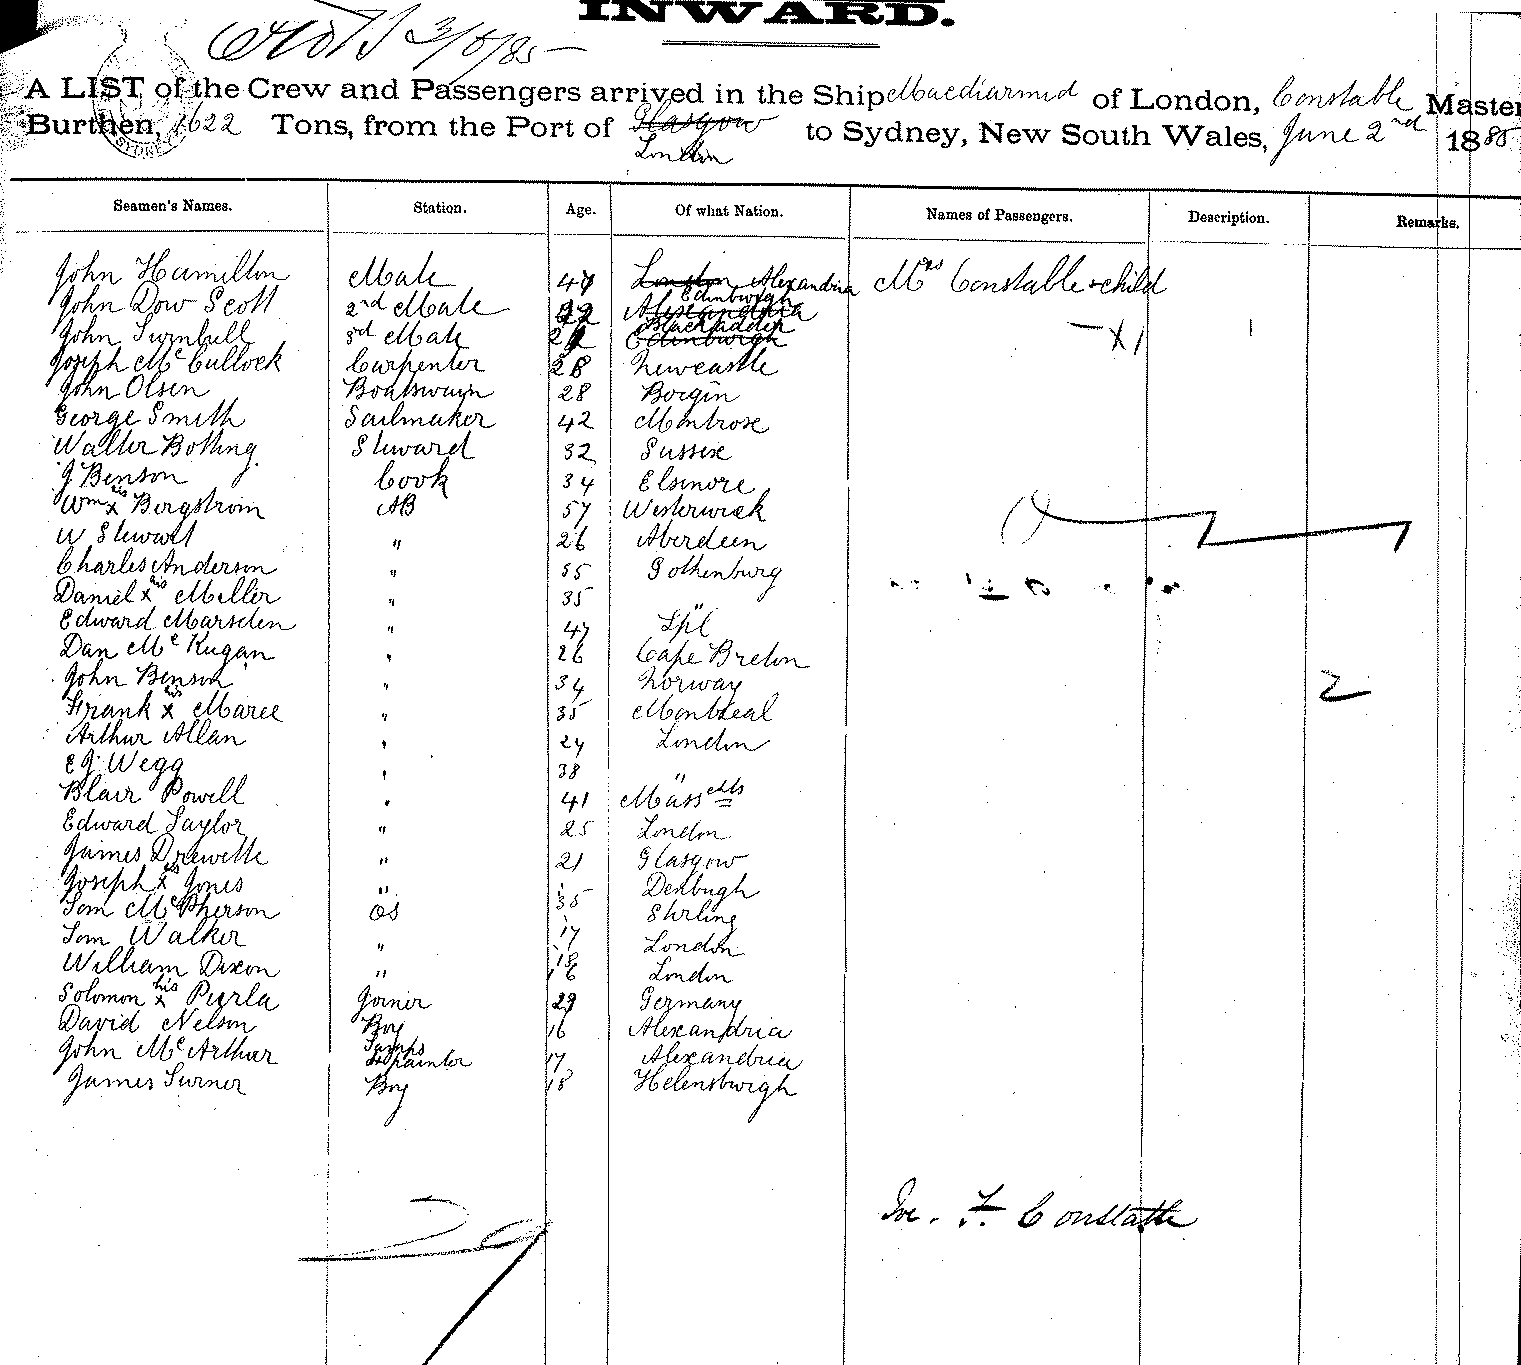 INWARD.
3/6/85
A LIST of the Crew and Passengers arrived in the Ship Macdiarmid of London, Constable Master
Burthen, 1622 Tons, from the Port of Glasgow to Sydney, New South Wales, June 2nd 1885
London
Seamen's Names. Station. Age. Of what Nation. Names of Passengers. Description. Remarks.
John Hamilton Mate 47 London Alexandria Mrs Constable & child
John Dow Scott 2nd Mate 22 Alexandria Edinburgh
John Turnbull 3rd Mate Edinburgh Blackadder
Joseph McCullock Carpenter 28 Newcastle
John Olsen Boatswain 28 Borgin
George Smith Sailmaker 42 Montrose
Walter Botting Steward 32 Sussex
J Benson Cook 34 Elsinore
Wm his x Bergstrom AB 57 Westerwick
W Stewart " 26 Aberdeen
Charles Anderson " 55 Gothenburg
Daniel his x Miller " 35 "
Edward Marsden " 47 Lpl
Dan McKugan " 26 Cape Breton
John Benson " 34 Norway
Frank his x Maree " 35 Montreal
Arthur Allan " 24 London
E J Wegg " 38 "
Blair Powell " 41 Masschts
Edward Taylor " 25 London
James Drewette " 21 Glasgow
Joseph his x Jones " 35 Denbugh
Tom McPherson OS 17 Stirling
Tom Walker " 18 London
William Dixon " 16 London
Solomon his x Purla Joiner 29 Germany
David Nelson Boy 16 Alexandria
John McArthur Lamps & painter 17 Alexandria
James Turner Boy 18 Helensburgh
29
Constable